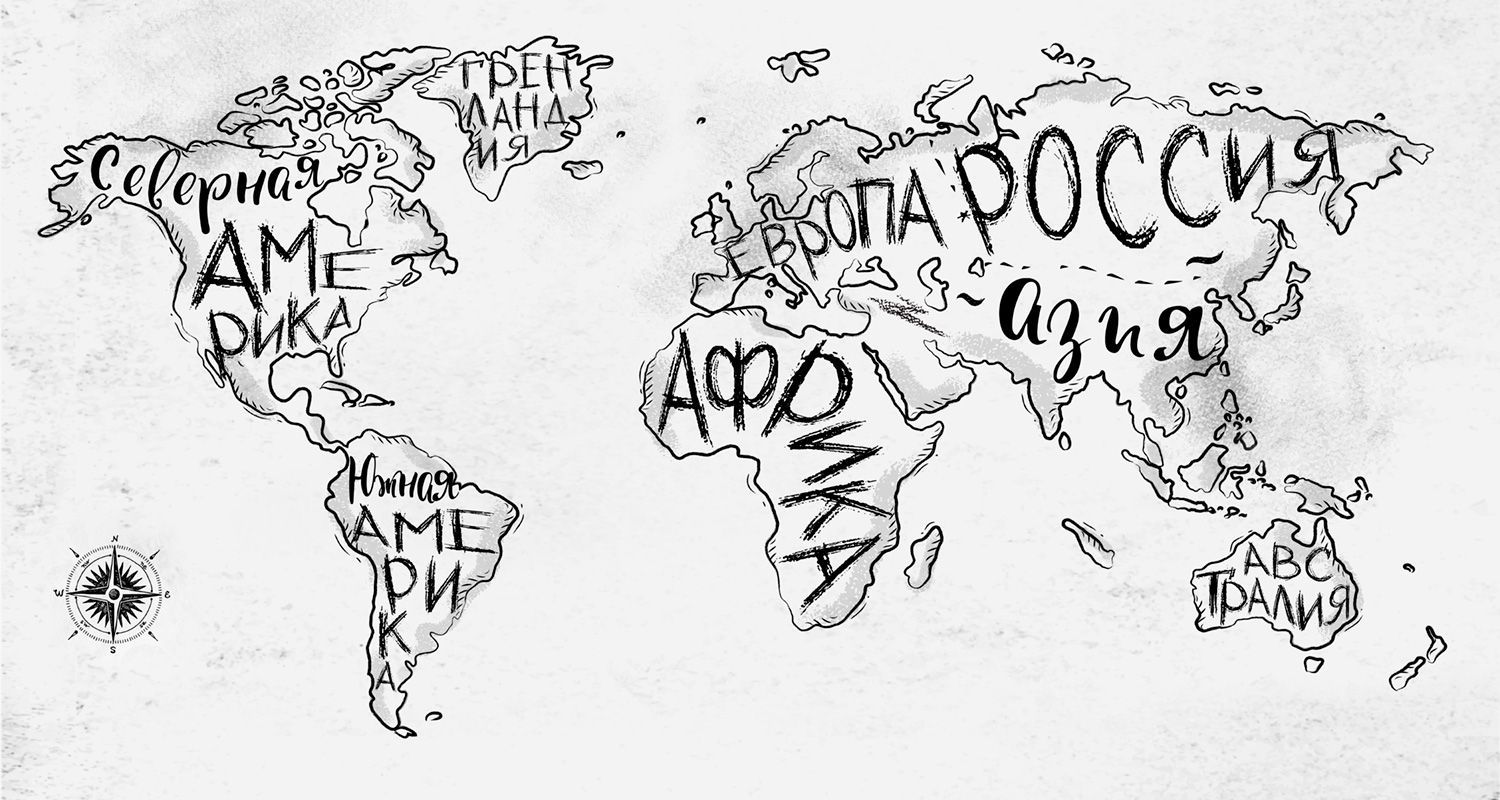 ГРЕН
ЛАНД
ИЯ
Северная
АМЕ
РИКА
ЕВРОПА
РОССИЯ
~азия~
АФРИКА
Южная
АМЕ
РИ
К
А
АВС
ТРАЛИЯ
N
W
E
S